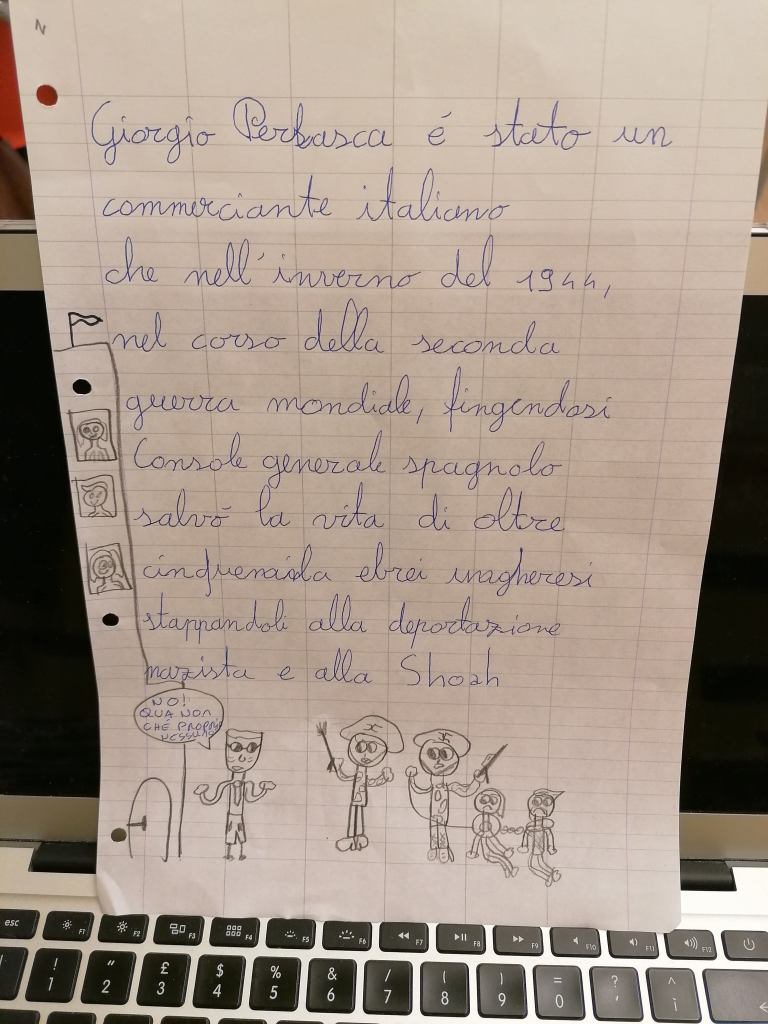 N
Giorgio Perlasca é stato un
commerciante italiano
che nell'inverno del 1944,
nel corso della seconda
guerra mondiale, fingendosi
Console generale spagnolo
salvó la vita di oltre
cinquemiala ebrei ungheresi
stappandoli alla deportazione
nazista e alla Shoah
NO!
QUA NON
C'HE PROPRI
NESSUNO
esc F1 F2 F3 F4 F5 F6 F7 F8 F9 F10 F11 F12
! " £ $ % & / ( ) = ? ^
1 2 3 4 5 6 7 8 9 0 ' ì